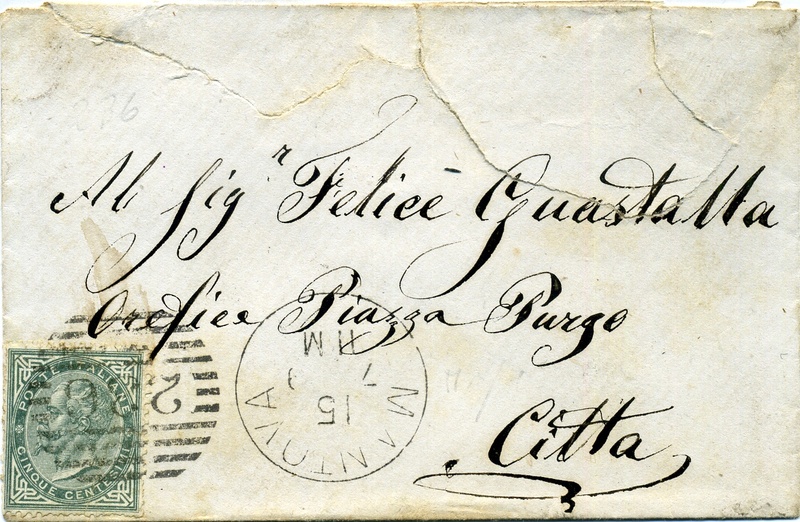 Al Sig.r Felice Guastalla
Orefice Piazza Purgo
Città
MANTOVA
15
7
11 M
POSTE ITALIANE
CINQUE CENTESIMI